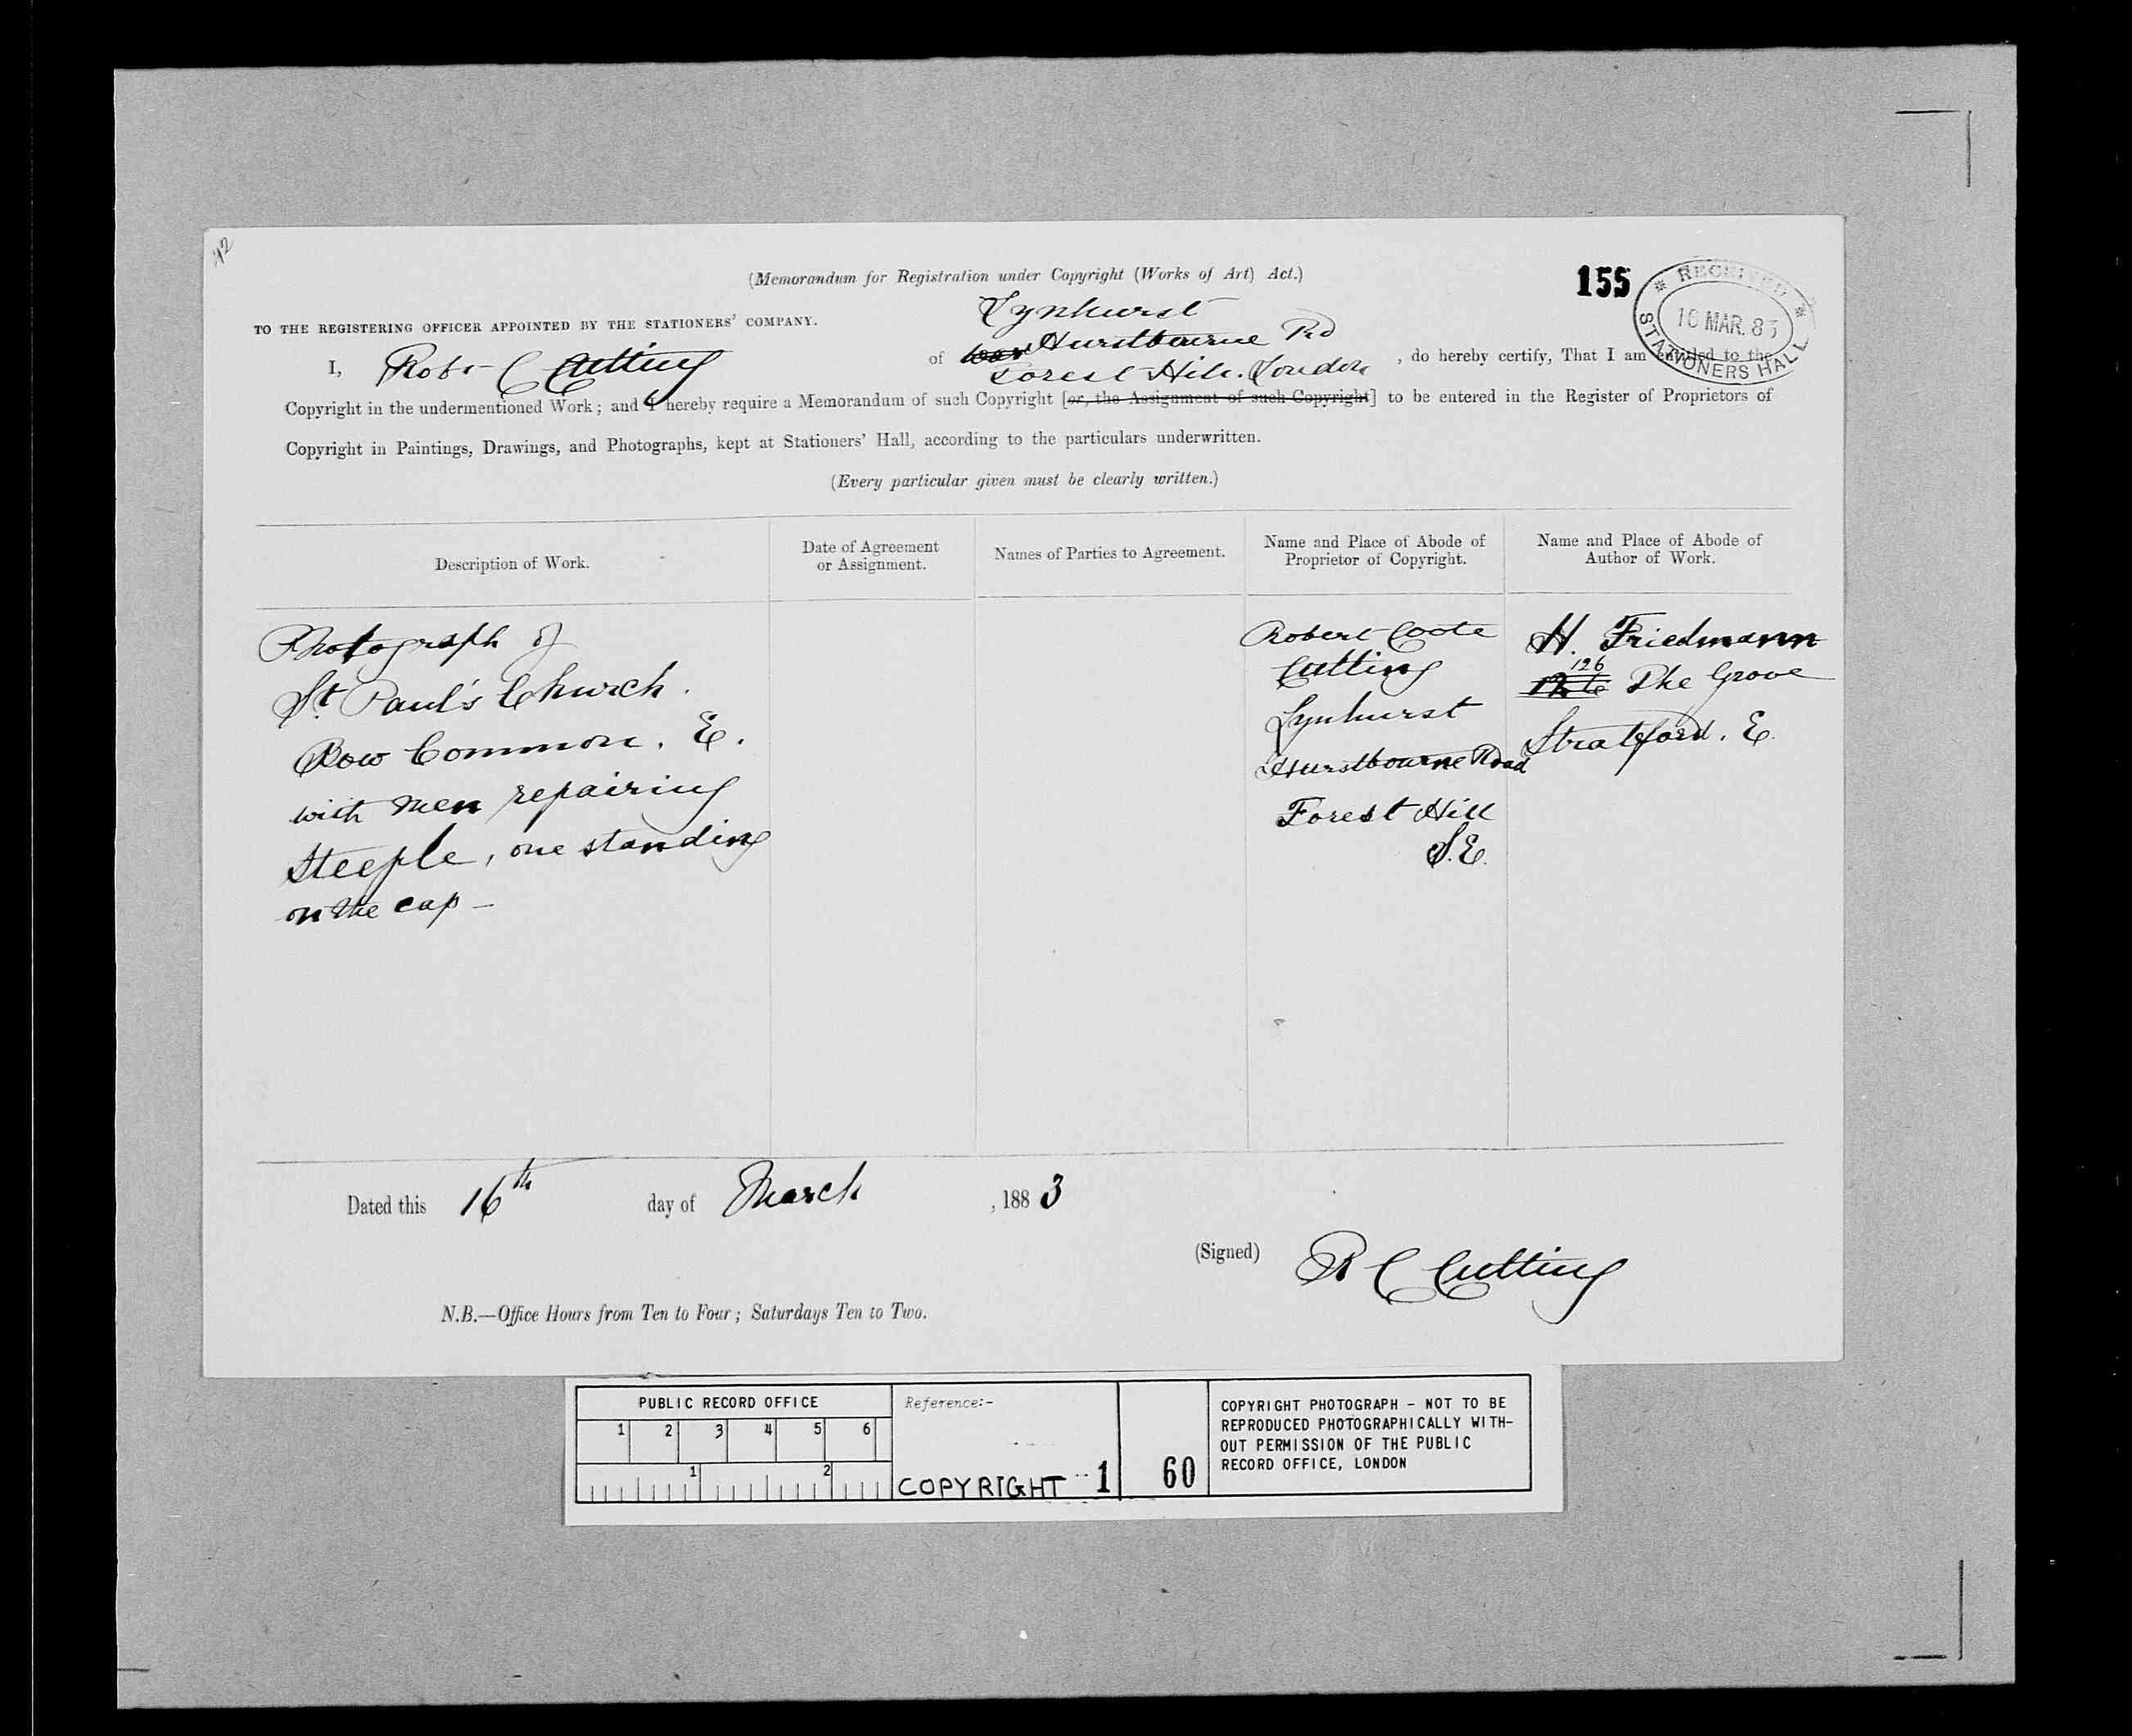 (Memorandum for Registration under Copyright (Works of Art) Act.)
155
RECEIVED
16 MAR. 83
STATIONERS HALL
TO THE REGISTERING OFFICER APPOINTED BY THE STATIONERS' COMPANY.
Lynhurst
I, Robt C Cutting of Hurstbourne Rd
Forest Hill. London
, do hereby certify, That I am entitled to the
Copyright in the undermentioned Work; and I hereby require a Memorandum of such Copyright [or, the Assignment of such Copyright] to be entered in the Register of Proprietors of
Copyright in Paintings, Drawings, and Photographs, kept at Stationers' Hall, according to the particulars underwritten.
(Every particular given must be clearly written.)
Description of Work.
Date of Agreement
or Assignment.
Names of Parties to Agreement.
Name and Place of Abode of
Proprietor of Copyright.
Name and Place of Abode of
Author of Work.
Photograph of
St Paul's Church.
Bow Common. E.
with men repairing
Steeple, one standing
on the cap -
Robert Coote
Cutting
Lynhurst
Hurstbourne Road
Forest Hill
S.E.
H. Friedmann
126
The Grove
Stratford. E.
Dated this 16th day of March , 1883
(Signed) R C Cutting
N.B.—Office Hours from Ten to Four; Saturdays Ten to Two.
PUBLIC RECORD OFFICE
1 2 3 4 5 6
1 2
Reference:-
COPYRIGHT 1
60
COPYRIGHT PHOTOGRAPH - NOT TO BE
REPRODUCED PHOTOGRAPHICALLY WITH-
OUT PERMISSION OF THE PUBLIC
RECORD OFFICE, LONDON